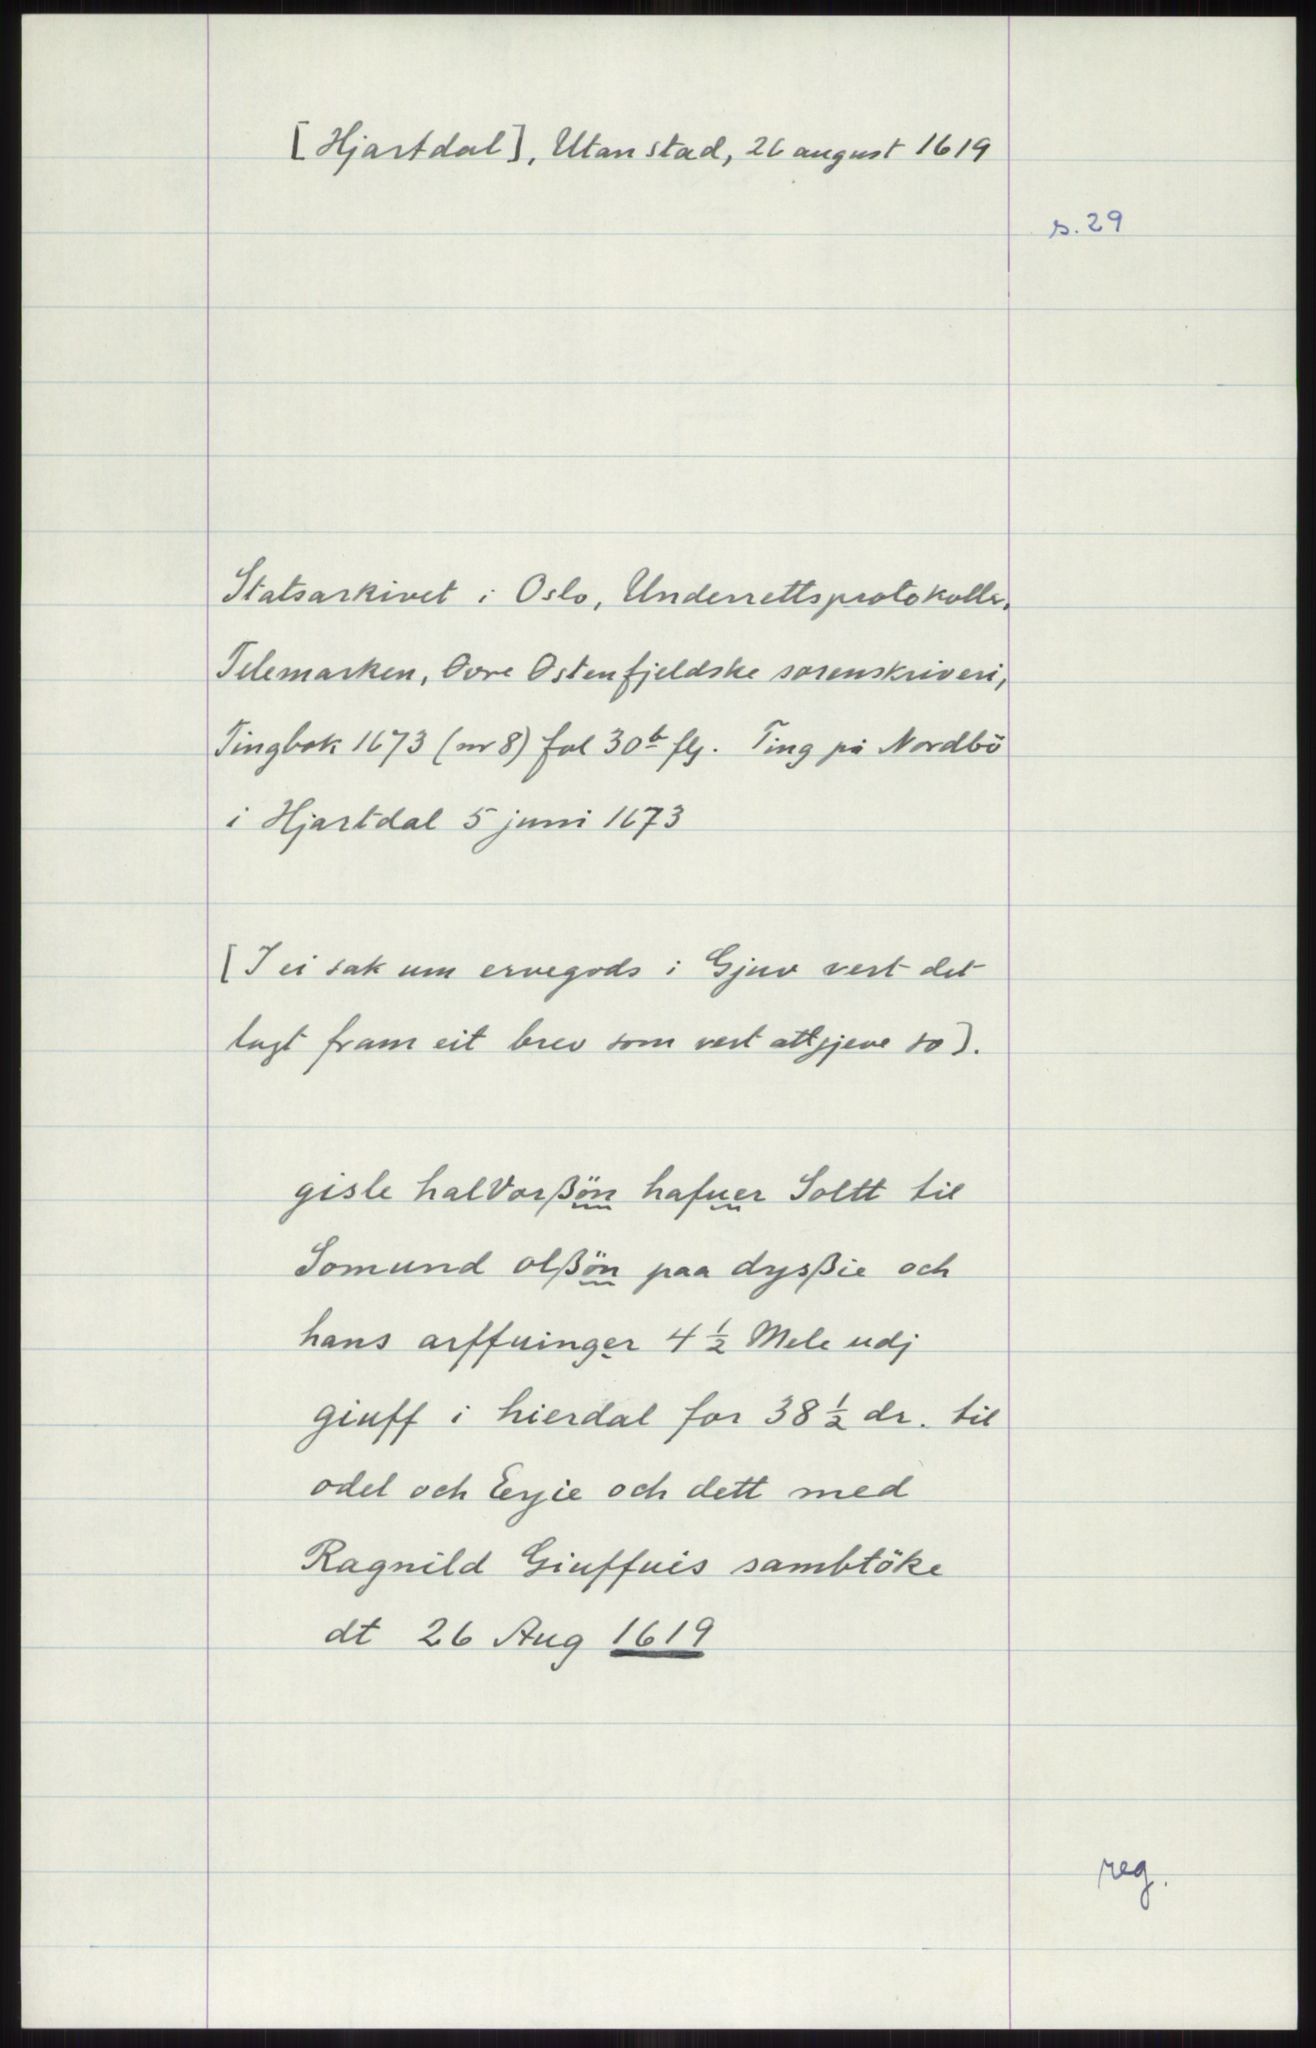 [Hjartdal], Utan stad, 26 august 1619
s. 29
Statsarkivet i Oslo, Underrettsprotokoller,
Telemarken, Øvre Østenfjeldske sorenskriveri,
Tingbok 1673 (nr 8) fol 30b flg. Ting på Nordbö
i Hjartdal 5 juni 1673
[I ei sak um ervegods i Gjuv vert det
lagt fram eit brev som vert attgjeve so].
gisle halVorßön hafuer Soltt til
Somund olßön paa dysßie och
hans arffuinger 4 ½ Mele udj
giuff i hierdal for 38 ½ dr. til
odel och Eeyie och dett med
Ragnild Giuffuis sambtöke
dt 26 Aug 1619
reg.